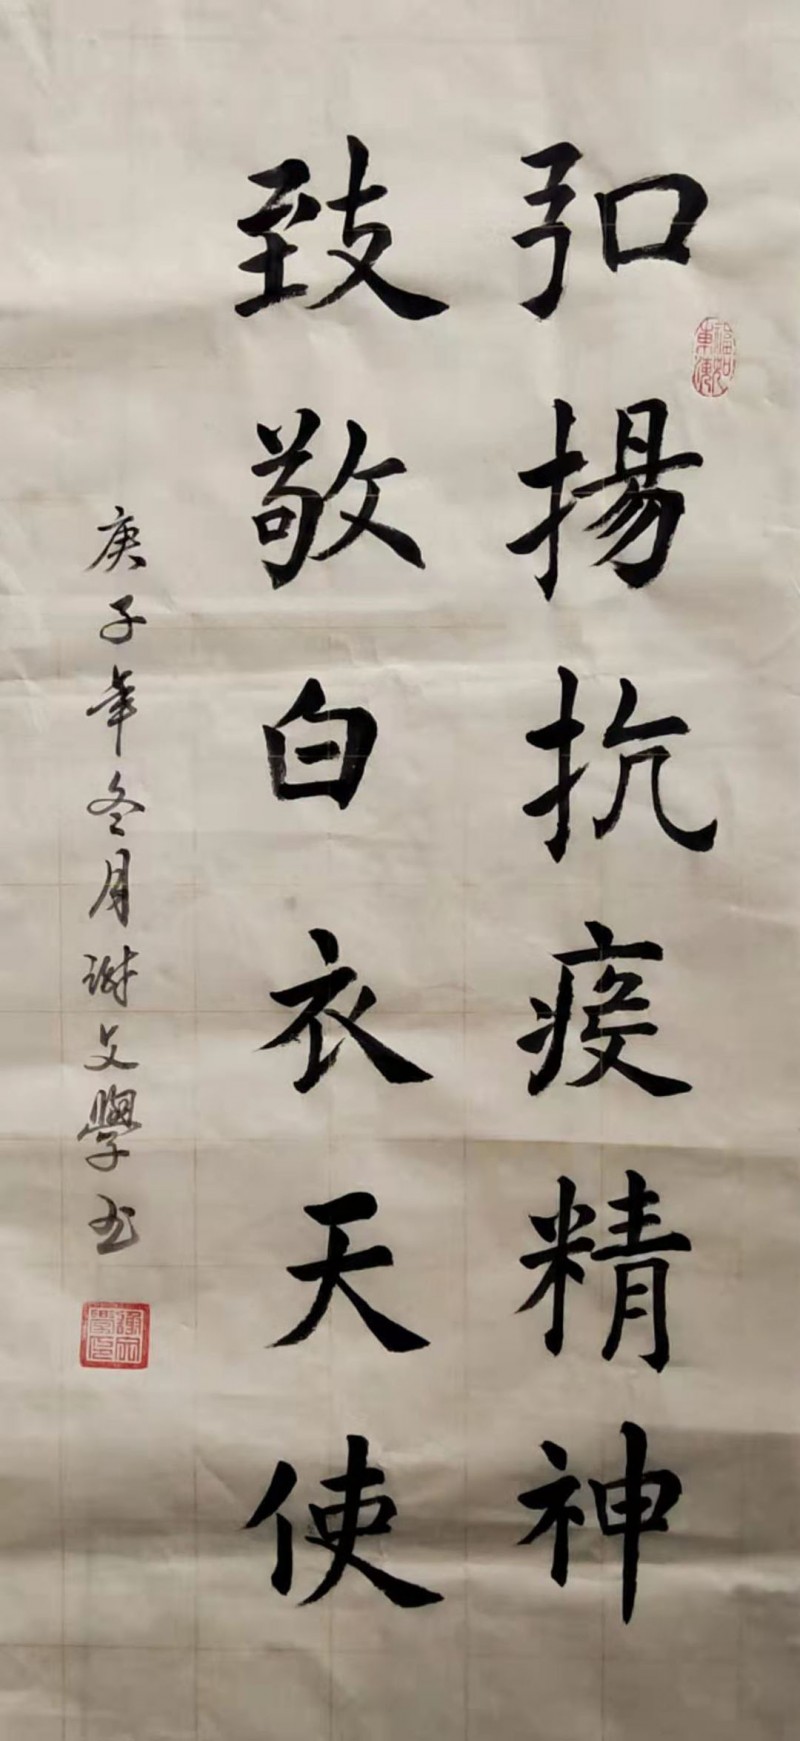 弘揚抗疫精神
致敬白衣天使
庚子年冬月谢文學书